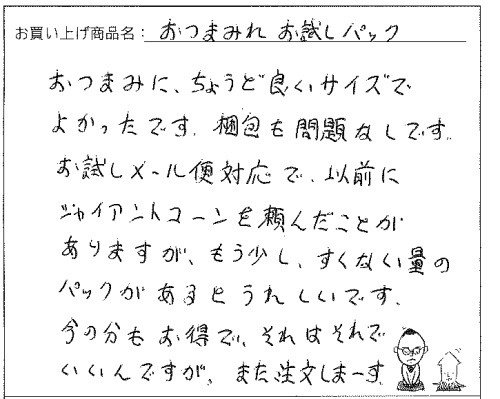 お買い上げ商品名：おつまみれ お試しパック
おつまみに、ちょうど良いサイズで
よかったです。梱包も問題なしです。
お試しメール便対応で、以前に
ジャイアントコーンを頼んだことが
ありますが、もう少し、すくない量の
パックがあるとうれしいです。
今の分もお得で、それはそれで
いいんですが、また注文しまーす。